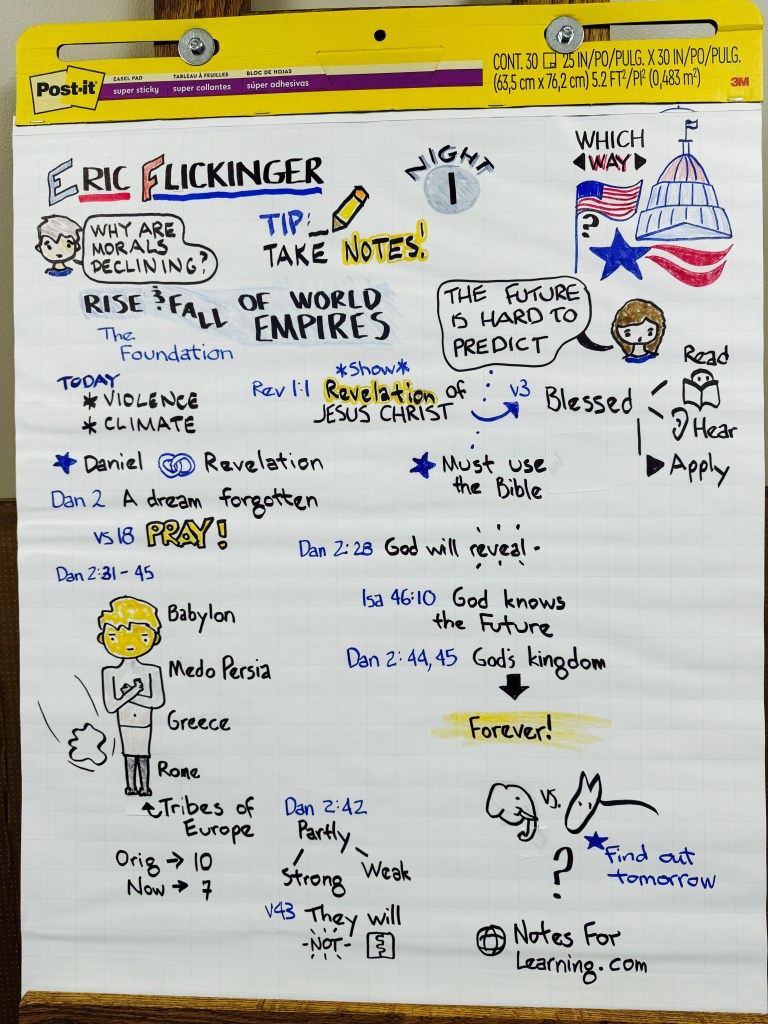 Post-it
EASEL PAD
super sticky
TABLEAU À FEUILLES
super collantes
BLOC DE HOJAS
súper adhesivas
CONT. 30 25 IN/PO/PULG. X 30 IN/PO/PULG.
(63,5 cm x 76,2 cm) 5.2 FT²/PI² (0,483 m²)
3M
ERIC FLICKINGER
NIGHT
1
WHICH
WAY
?
WHY ARE
MORALS
DECLINING?
TIP:
TAKE NOTES!
RISE & FALL OF WORLD
EMPIRES
The
Foundation
THE FUTURE
IS HARD TO
PREDICT
TODAY
* VIOLENCE
* CLIMATE
*Show*
Rev 1:1 Revelation of
JESUS CHRIST
v3 Blessed
Read
Hear
Apply
Daniel Revelation
Must use
the Bible
Dan 2 A dream forgotten
vs 18 PRAY!
Dan 2:28 God will reveal
Dan 2:31-45
Isa 46:10 God knows
the Future
Dan 2:44,45 God's kingdom
Forever!
Babylon
Medo Persia
Greece
Rome
Tribes of
Europe
Orig → 10
Now → 7
Dan 2:42
Partly
Strong Weak
v43 They will
-NOT-
VS.
?
Find out
tomorrow
Notes For
Learning.com